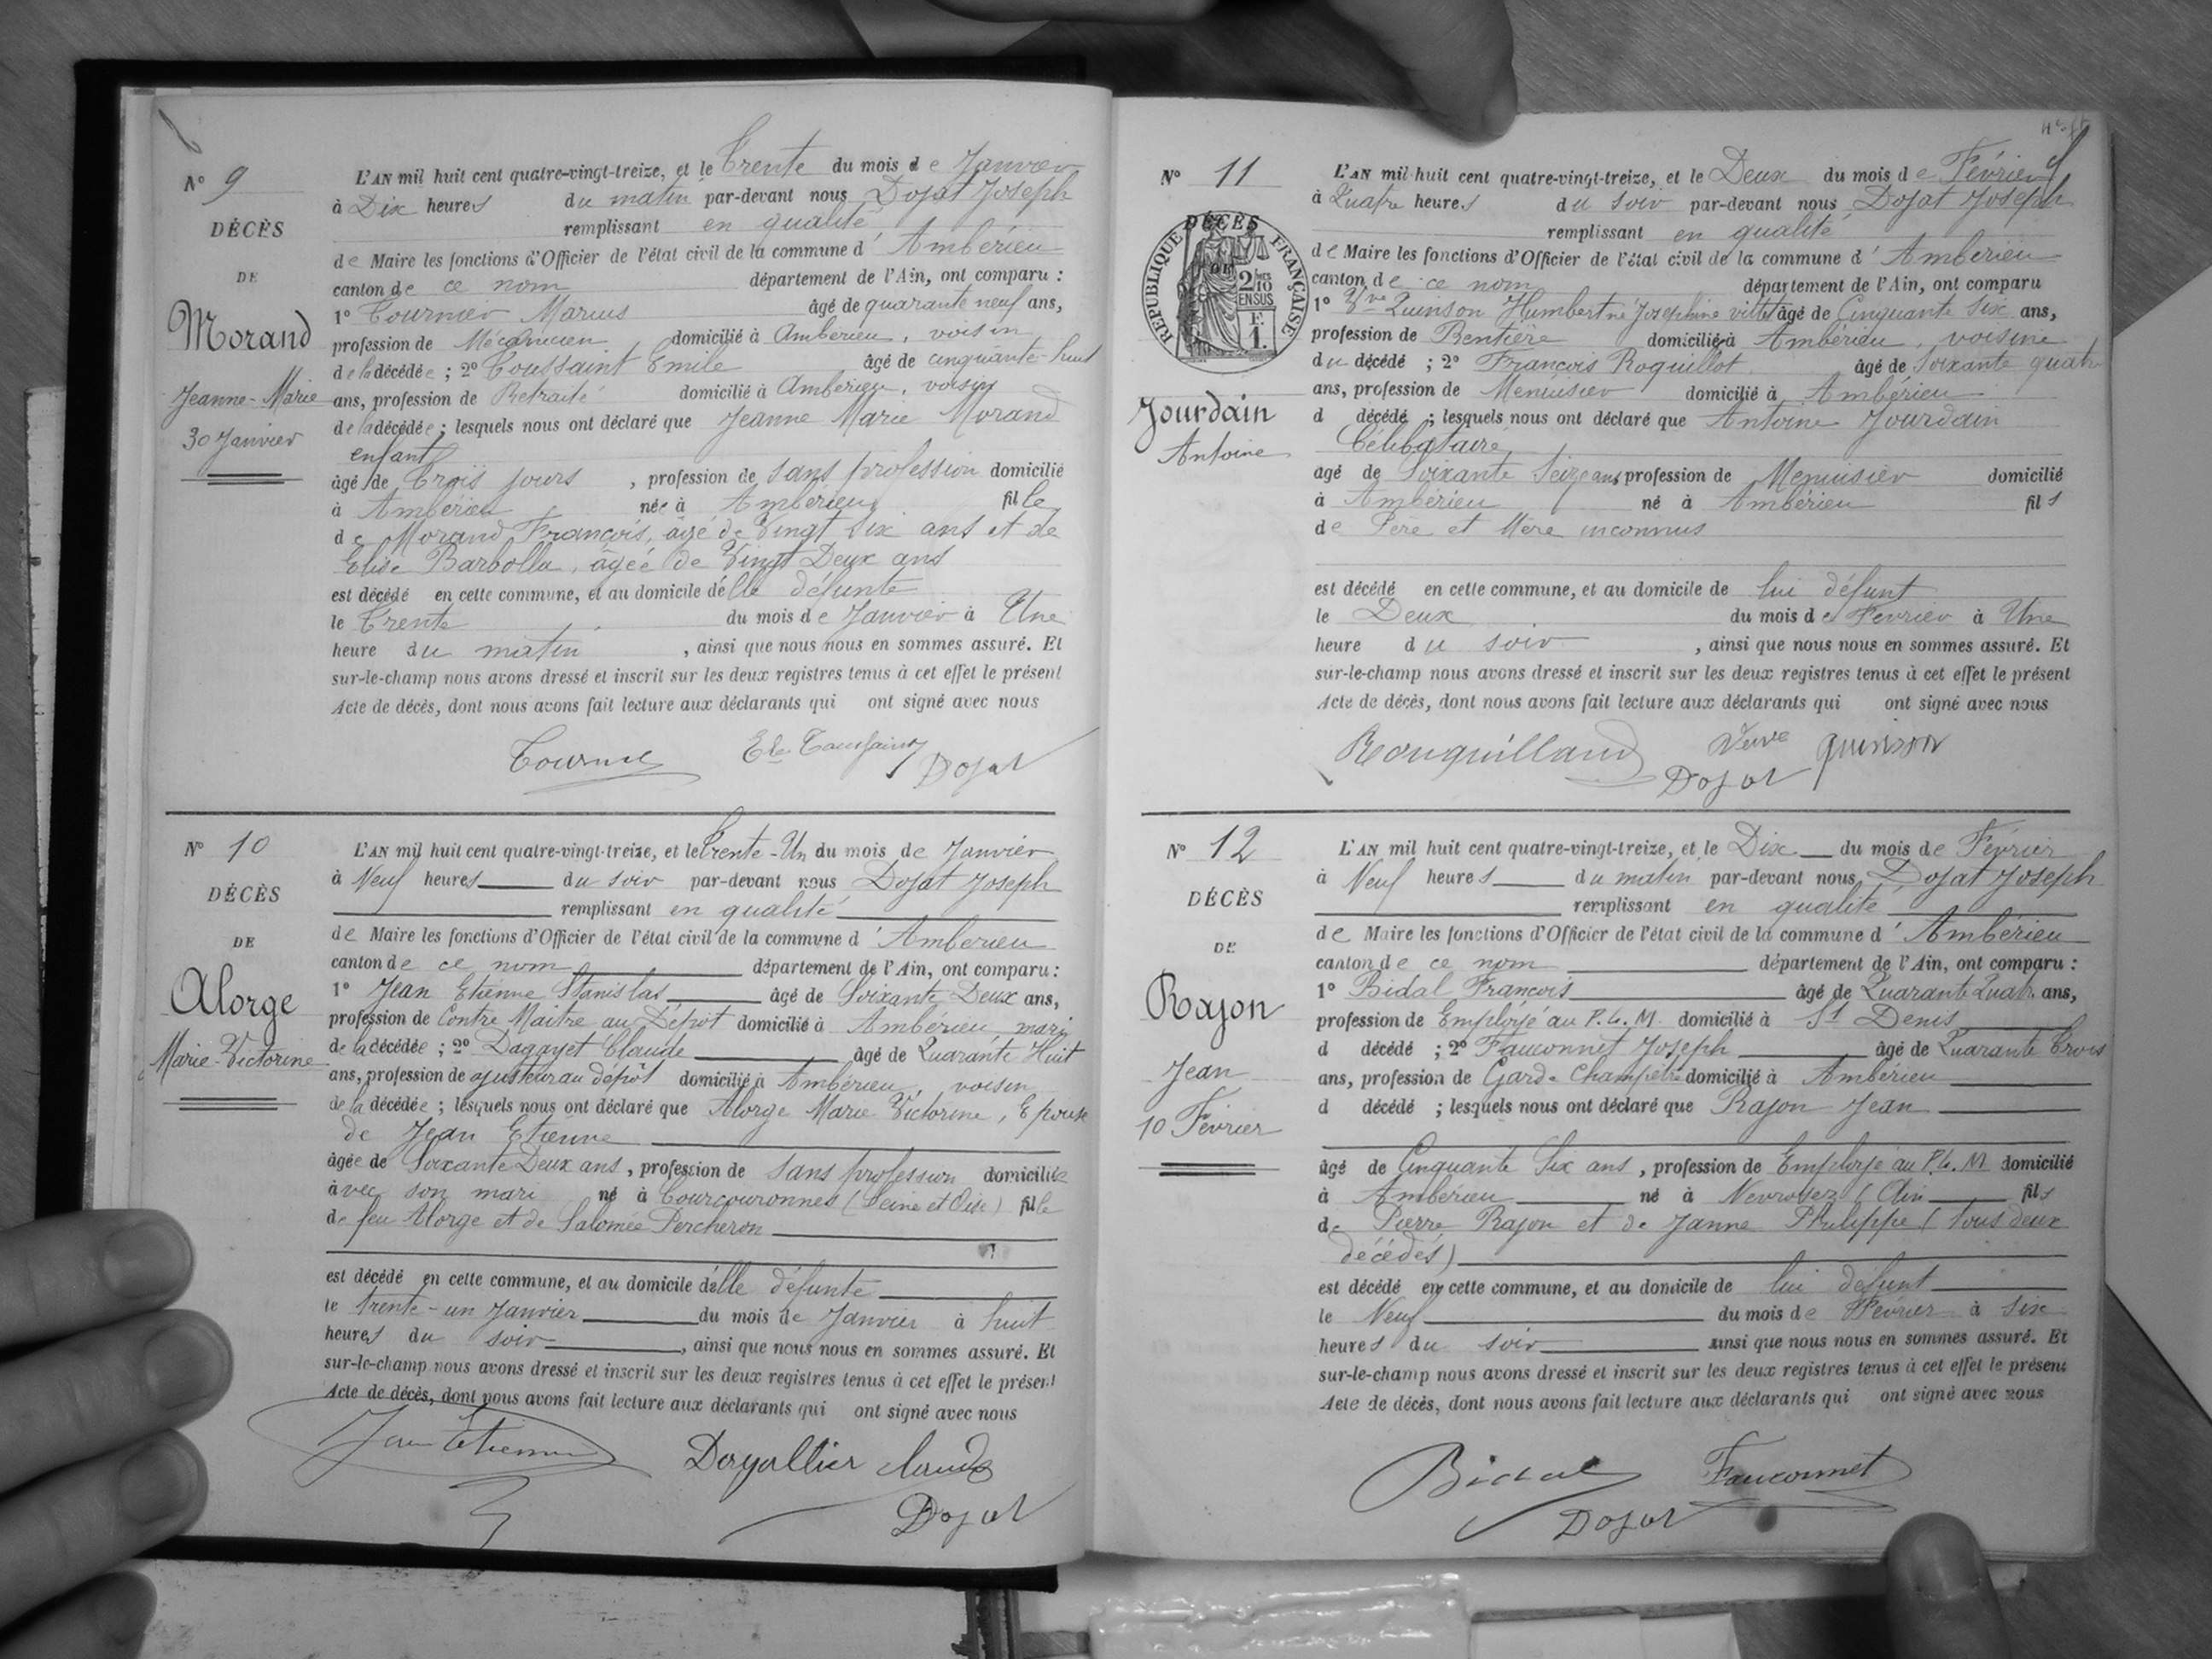 N° 9
DÉCÈS
DE
Morand
Jeanne-Marie
30 Janvier
L'AN mil huit cent quatre-vingt-treize, et le Trente du mois de Janvier
à Dix heures du matin par-devant nous Dojat Joseph
remplissant en qualité
de Maire les fonctions d'Officier de l'état civil de la commune d'Ambérieu
canton de ce nom département de l'Ain, ont comparu :
1° Tournier Marius âgé de quarante neuf ans,
profession de Mécanicien domicilié à Ambérieu, voisin
de la décédée ; 2° Toussaint Emile âgé de cinquante-huit
ans, profession de Retraité domicilié à Ambérieu, voisin
de la décédée ; lesquels nous ont déclaré que Jeanne Marie Morand
enfant
âgé de Trois jours , profession de sans profession domicilié
à Ambérieu née à Ambérieu fille
de Morand François, âgé de Vingt Six ans et de
Elise Barbolla, âgée de Vingt Deux ans
est décédé en cette commune, et au domicile d'elle défunte
le Trente du mois de Janvier à Une
heure du matin , ainsi que nous nous en sommes assuré. Et
sur-le-champ nous avons dressé et inscrit sur les deux registres tenus à cet effet le présent
Acte de décès, dont nous avons fait lecture aux déclarants qui ont signé avec nous
Toussaint
Dojat
N° 10
DÉCÈS
DE
Alorge
Marie-Victorine
L'AN mil huit cent quatre-vingt-treize, et le Trente-Un du mois de Janvier
à Neuf heures du soir par-devant nous Dojat Joseph
remplissant en qualité
de Maire les fonctions d'Officier de l'état civil de la commune d'Ambérieu
canton de ce nom département de l'Ain, ont comparu :
1° Jean Etienne Stanislas âgé de Soixante Deux ans,
profession de Contre Maitre au Dépôt domicilié à Ambérieu, mari
de la décédée ; 2° Dagayet Claude âgé de Quarante Huit
ans, profession de ajusteur au dépôt domicilié à Ambérieu, voisin
de la décédée ; lesquels nous ont déclaré que Alorge Marie Victorine, Epouse
de Jean Etienne
âgée de Soixante Deux ans , profession de sans profession domiciliée
avec son mari né à Courcouronnes (Seine et Oise) fille
de feu Alorge et de Salomée Percheron
est décédé en cette commune, et au domicile d'elle défunte
le trente-un Janvier du mois de Janvier à huit
heures du soir , ainsi que nous nous en sommes assuré. Et
sur-le-champ nous avons dressé et inscrit sur les deux registres tenus à cet effet le présent
Acte de décès, dont nous avons fait lecture aux déclarants qui ont signé avec nous
Jean Etienne
Claude
Dojat
N° 11
REPUBLIQUE FRANÇAISE
DÉCÈS
DE
2/10 EN SUS
F. 1.
Jourdain
Antoine
L'AN mil huit cent quatre-vingt-treize, et le Deux du mois de Février
à Quatre heures du soir par-devant nous Dojat Joseph
remplissant en qualité
de Maire les fonctions d'Officier de l'état civil de la commune d'Ambérieu
canton de ce nom département de l'Ain, ont comparu
1° Vve Quinson Humbert né Joséphine âgé de Cinquante Six ans,
profession de Rentière domicilié à Ambérieu, voisine
du décédé ; 2° François Roquillot âgé de Soixante quatre
ans, profession de Menuisier domicilié à Ambérieu
d décédé ; lesquels nous ont déclaré que Antoine Jourdain
Célibataire
agé de Soixante Seize ans profession de Menuisier domicilié
à Ambérieu né à Ambérieu fils
de Père et Mère inconnus
est décédé en cette commune, et au domicile de lui défunt
le Deux du mois de Fevrier à Une
heure du soir , ainsi que nous nous en sommes assuré. Et
sur-le-champ nous avons dressé et inscrit sur les deux registres tenus à cet effet le présent
Acte de décès, dont nous avons fait lecture aux déclarants qui ont signé avec nous
Rouquilland Veuve Quinson
Dojat
N° 12
DÉCÈS
DE
Rajon
Jean
10 Février
L'AN mil huit cent quatre-vingt-treize, et le Dix du mois de Février
à Neuf heures du matin par-devant nous Dojat Joseph
remplissant en qualité
de Maire les fonctions d'Officier de l'état civil de la commune d'Ambérieu
canton de ce nom département de l'Ain, ont comparu :
1° Bidal François âgé de Quarante Quatre ans,
profession de Employé au P.L.M. domicilié à St Denis
d décédé ; 2° Fauconnet Joseph âgé de Quarante Trois
ans, profession de Garde Champêtre domicilié à Ambérieu
d décédé ; lesquels nous ont déclaré que Rajon Jean
âgé de Cinquante Six ans , profession de Employé au P.L.M domicilié
à Ambérieu né à (Ain fils
de Pierre Rajon et de Janne Philippe (tous deux
décédés)
est décédé en cette commune, et au domicile de lui défunt
le Neuf du mois de Février à six
heures du soir ainsi que nous nous en sommes assuré. Et
sur-le-champ nous avons dressé et inscrit sur les deux registres tenus à cet effet le présent
Acte de décès, dont nous avons fait lecture aux déclarants qui ont signé avec nous
Bidal Fauconnet
Dojat